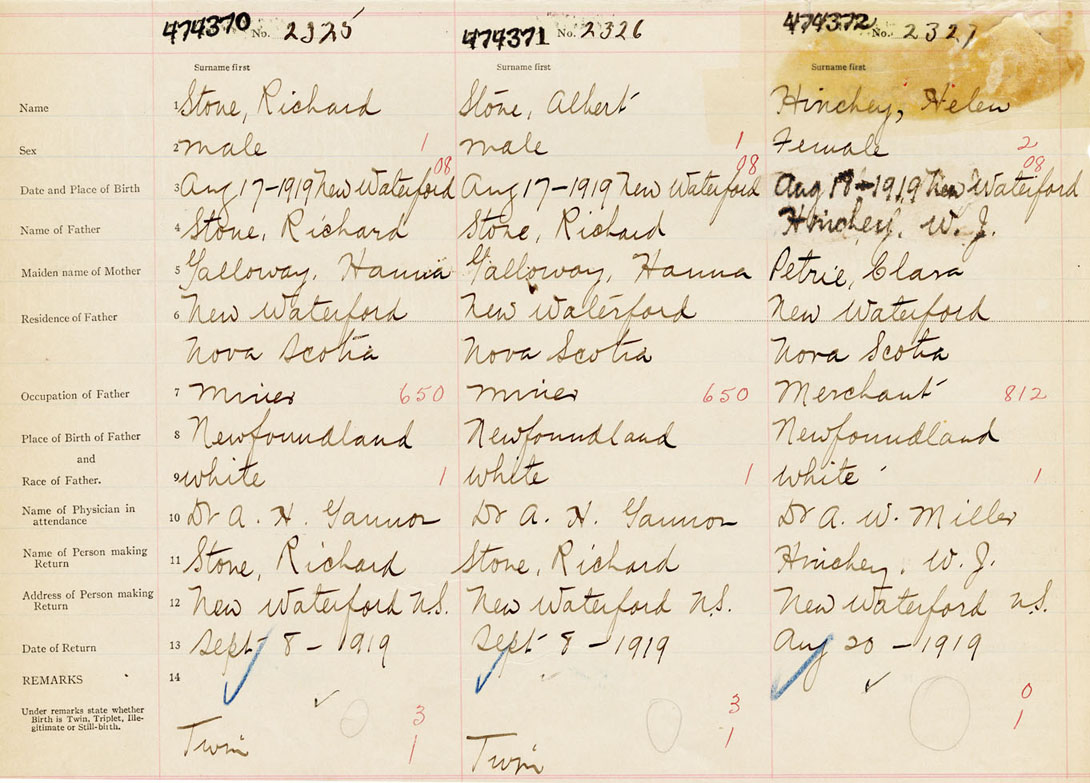 474370 No. 2325 474371 No. 2326 474372 No. 2327
Surname first Surname first Surname first
Name 1 Stone, Richard Stone, Albert Hinchey, Helen
Sex 2 male 1 male 1 Female 2
08 08 08
Date and Place of Birth 3 Aug 17-1919 New Waterford Aug 17-1919 New Waterford Aug 18-1919 New Waterford
Name of Father 4 Stone, Richard Stone, Richard Hinchey, W. J.
Maiden name of Mother 5 Galloway, Hanna Galloway, Hanna Petrie, Clara
Residence of Father 6 New Waterford New Waterford New Waterford
Nova Scotia Nova Scotia Nova Scotia
Occupation of Father 7 Miner 650 Miner 650 Merchant 812
Place of Birth of Father 8 Newfoundland Newfoundland Newfoundland
and
Race of Father. 9 white 1 white 1 white 1
Name of Physician in
attendance 10 Dr A. H. Gannon Dr A. H. Gannon Dr A. W. Miller
Name of Person making
Return 11 Stone, Richard Stone, Richard Hinchey, W. J.
Address of Person making
Return 12 New Waterford N.S. New Waterford N.S. New Waterford N.S.
Date of Return 13 Sept 8 - 1919 Sept 8 - 1919 Aug 20 - 1919
REMARKS 14
Under remarks state whether
Birth is Twin, Triplet, Ille-
gitimate or Still-birth.
3 3 0
Twin 1 Twin 1 1